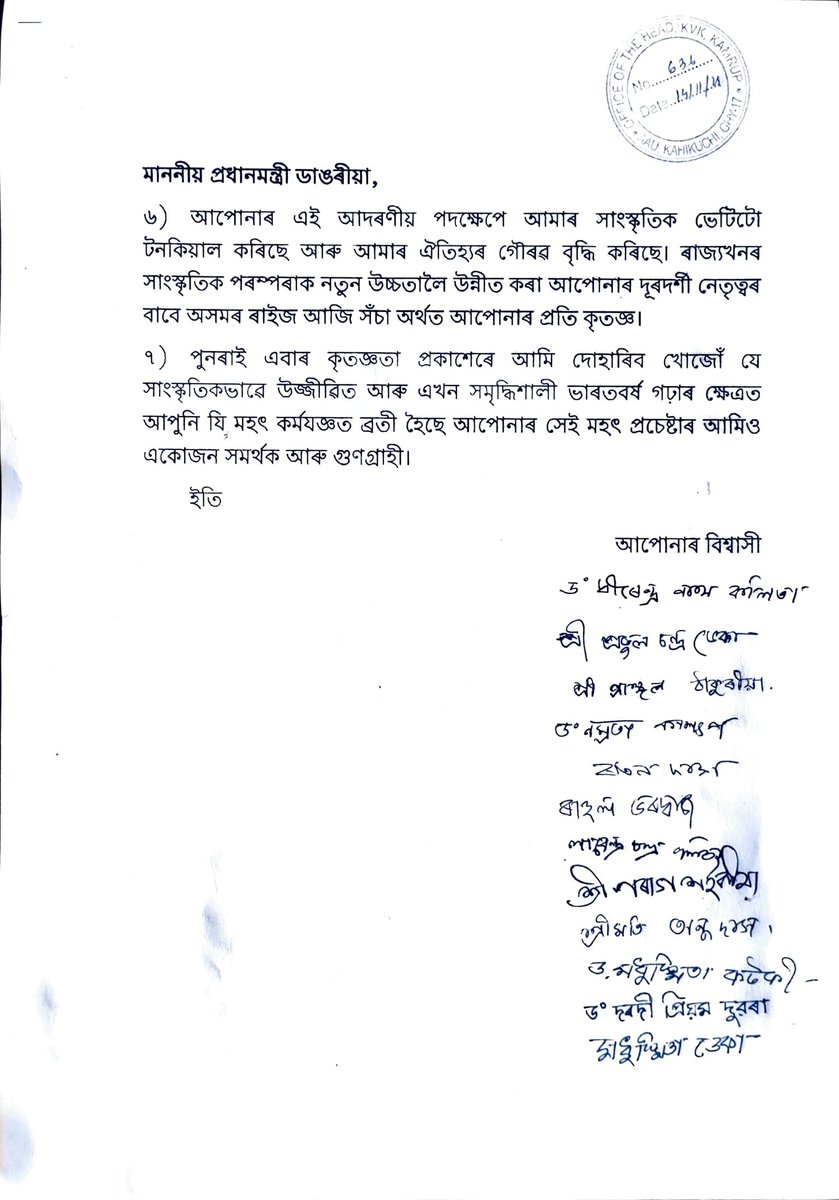 OFFICE OF THE HEAD, KVK, KAMRUP
No. 636
Date. 14/11/24
AAU, KAHIKUCHI, GHY-17
মাননীয় প্ৰধানমন্ত্ৰী ডাঙৰীয়া,
৬) আপোনাৰ এই আদৰণীয় পদক্ষেপে আমাৰ সাংস্কৃতিক ভেটিটো
টনকিয়াল কৰিছে আৰু আমাৰ ঐতিহ্যৰ গৌৰৱ বৃদ্ধি কৰিছে। ৰাজ্যখনৰ
সাংস্কৃতিক পৰম্পৰাক নতুন উচ্চতালৈ উন্নীত কৰা আপোনাৰ দূৰদৰ্শী নেতৃত্বৰ
বাবে অসমৰ ৰাইজ আজি সঁচা অৰ্থত আপোনাৰ প্ৰতি কৃতজ্ঞ।
৭) পুনৰাই এবাৰ কৃতজ্ঞতা প্ৰকাশেৰে আমি দোহাৰিব খোজোঁ যে
সাংস্কৃতিকভাৱে উজ্জীৱিত আৰু এখন সমৃদ্ধিশালী ভাৰতবৰ্ষ গঢ়াৰ ক্ষেত্ৰত
আপুনি যি মহৎ কৰ্মযজ্ঞত ব্ৰতী হৈছে আপোনাৰ সেই মহৎ প্ৰচেষ্টাৰ আমিও
একোজন সমৰ্থক আৰু গুণগ্ৰাহী।
ইতি
আপোনাৰ বিশ্বাসী
ড° হীৰেন্দ্ৰ নাথ কলিতা
শ্ৰী প্ৰফুল চন্দ্ৰ ডেকা
শ্ৰী প্ৰাঞ্জল ঠাকুৰীয়া.
ড° নম্ৰতা কাশ্যপ
দাস
ৰাহুল ভৰদ্বাজ
চন্দ্ৰ কলিতা
শ্ৰী পৰাগ শইকীয়া
শ্ৰীমতি অনু দাস।
ড. মধুস্মিতা কটকী
ড° দৰদী প্ৰিয়ম দুৱৰা
মধুস্মিতা ডেকা